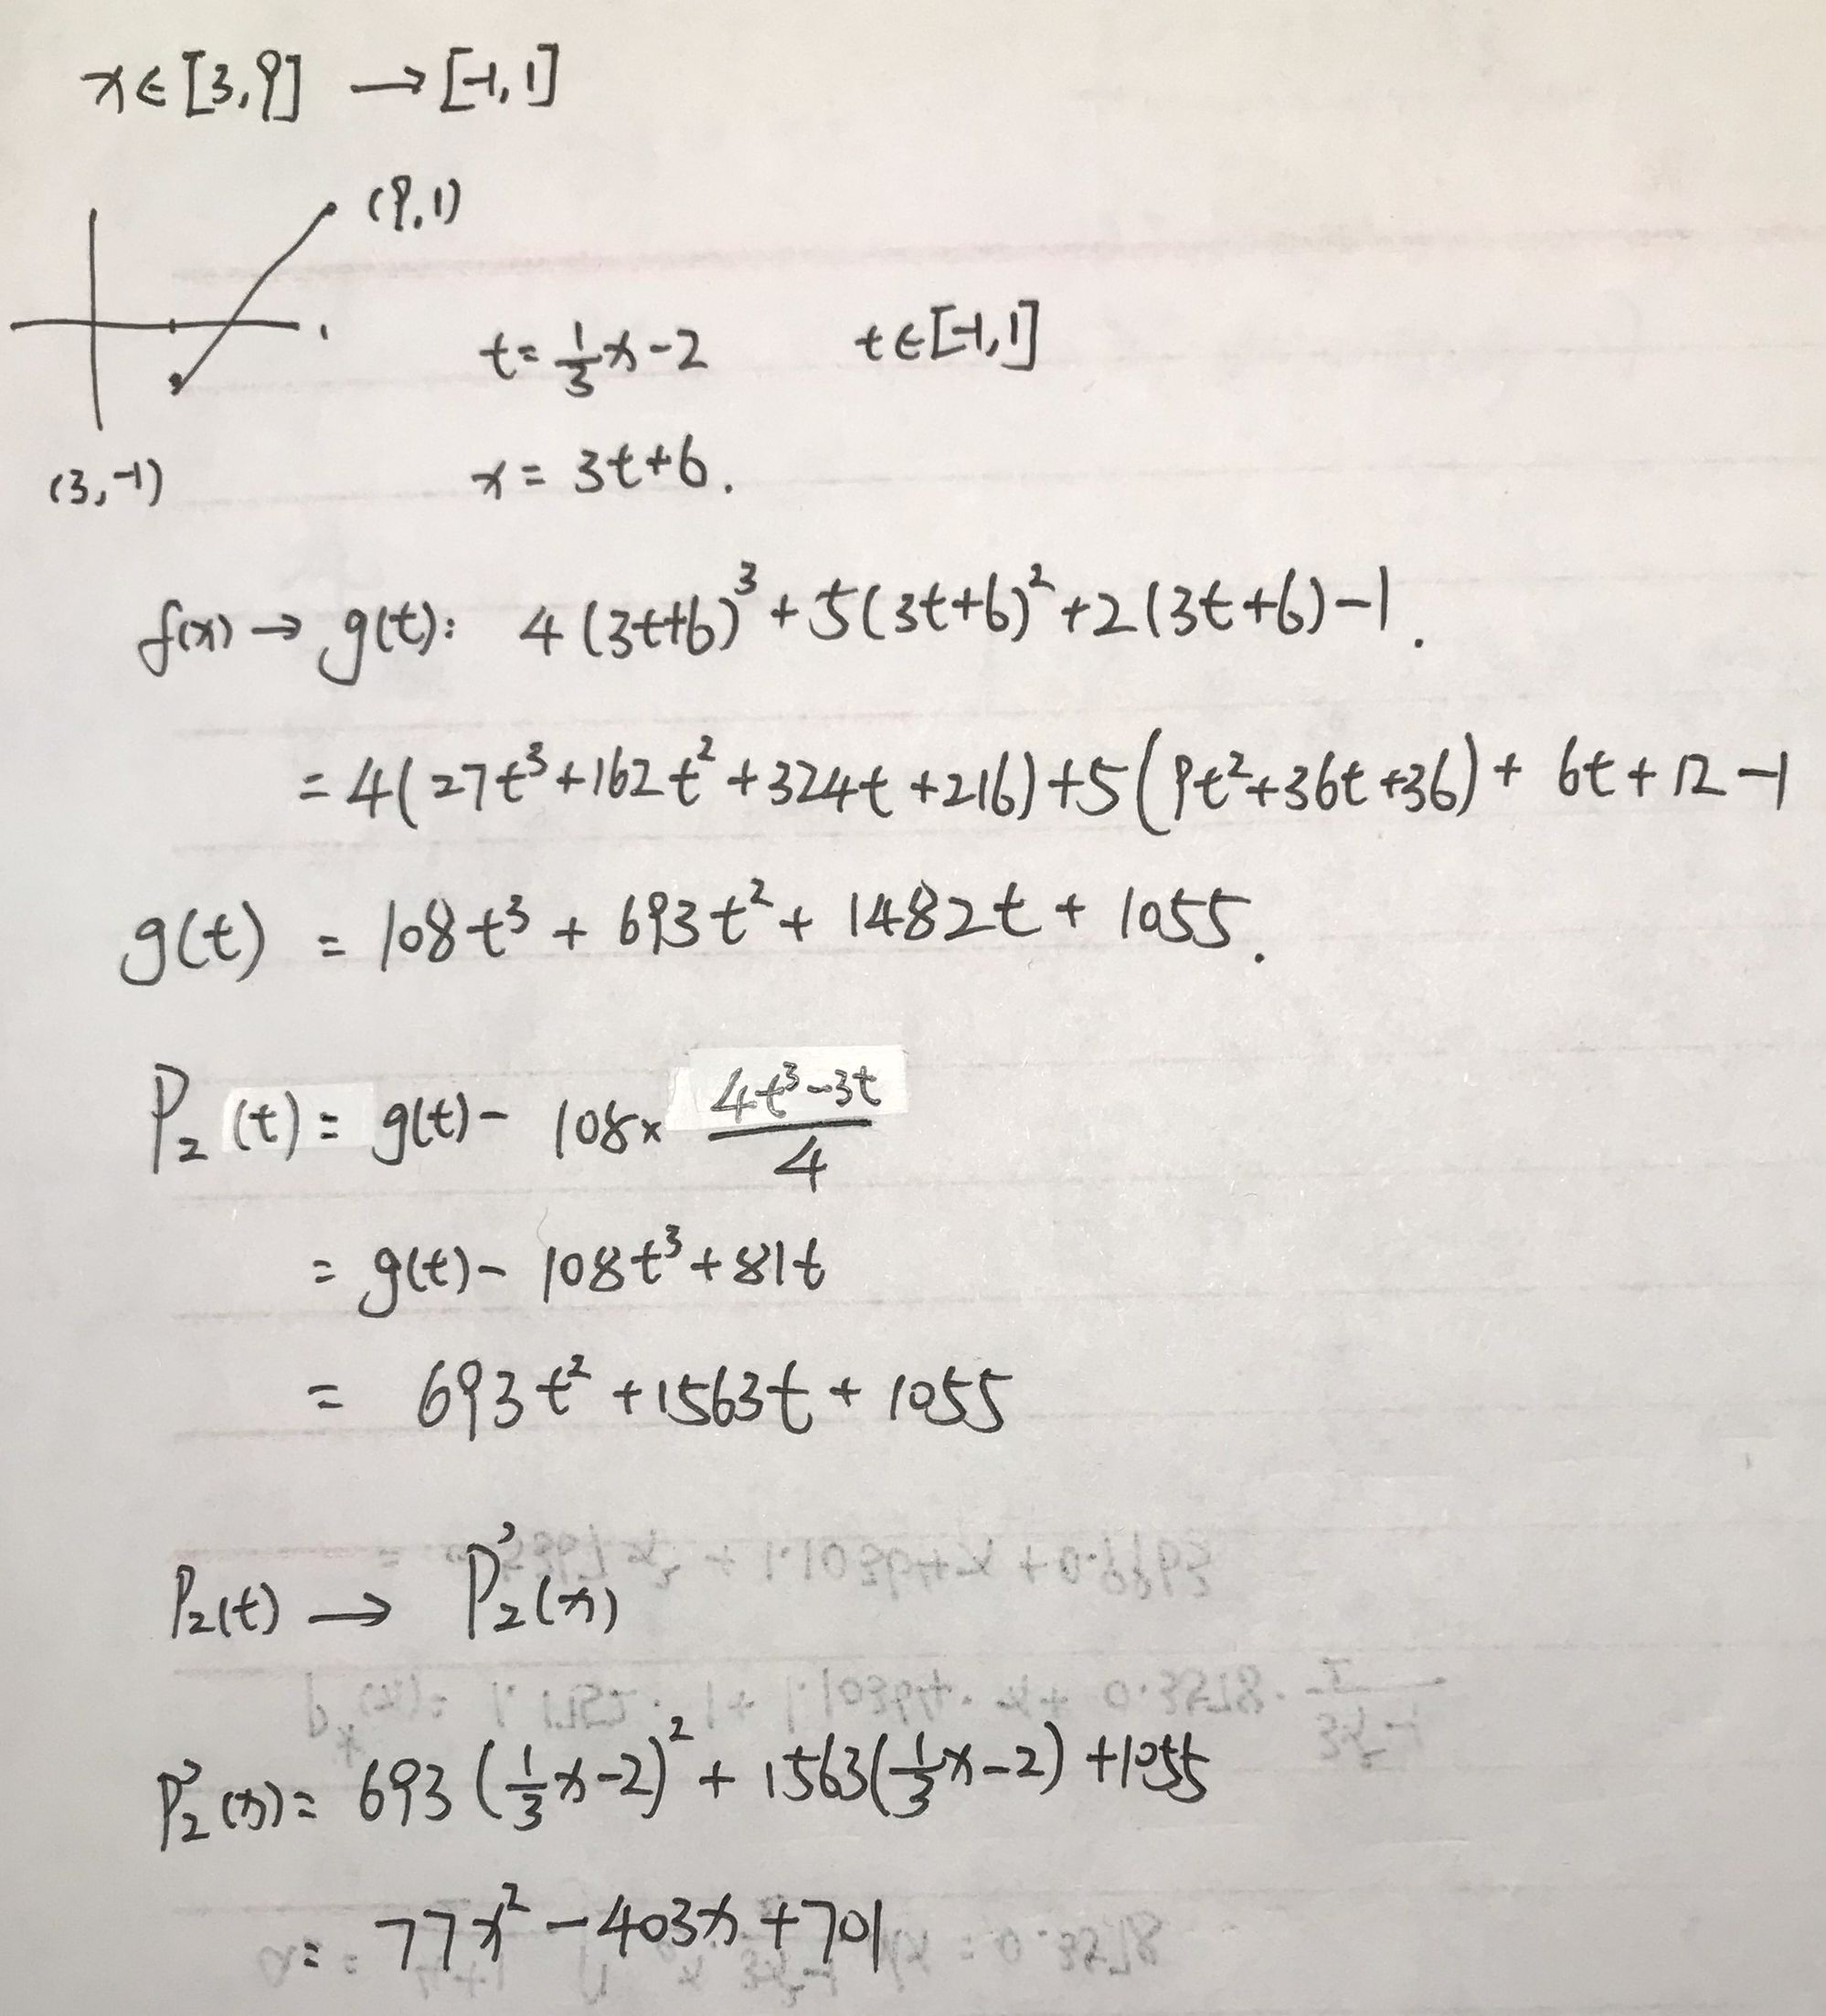 x∈[3,9] → [-1,1]
(9,1)
t = 1/3 x - 2   t∈[-1,1]
(3,-1)
x = 3t+6.
f(x) → g(t): 4(3t+6)³ + 5(3t+6)² + 2(3t+6) - 1.
= 4(27t³ + 162t² + 324t + 216) + 5(9t² + 36t + 36) + 6t + 12 - 1
g(t) = 108t³ + 693t² + 1482t + 1055.
P₂(t) = g(t) - 108× (4t³-3t)/4
= g(t) - 108t³ + 81t
= 693t² + 1563t + 1055
P₂(t) → P₂'(x)
P₂'(x) = 693(1/3 x - 2)² + 1563(1/3 x - 2) + 1055
= 77x² - 403x + 701